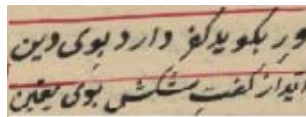 ور بکوید کفر دارد بوی دین
آید از کفت شکش بوی یقین